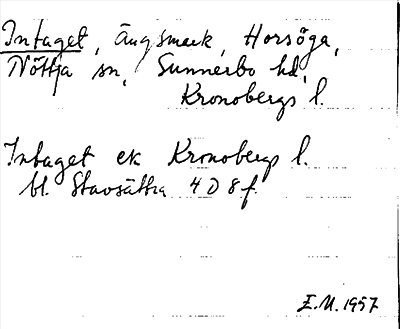 Intaget, ängsmark, Horsöga,
Nöttja sn, Sunnerbo hd,
Kronobergs l.
Intaget ek Kronobergs l.
bl. Stavsätra 4 D 8 f.
E.M. 1957